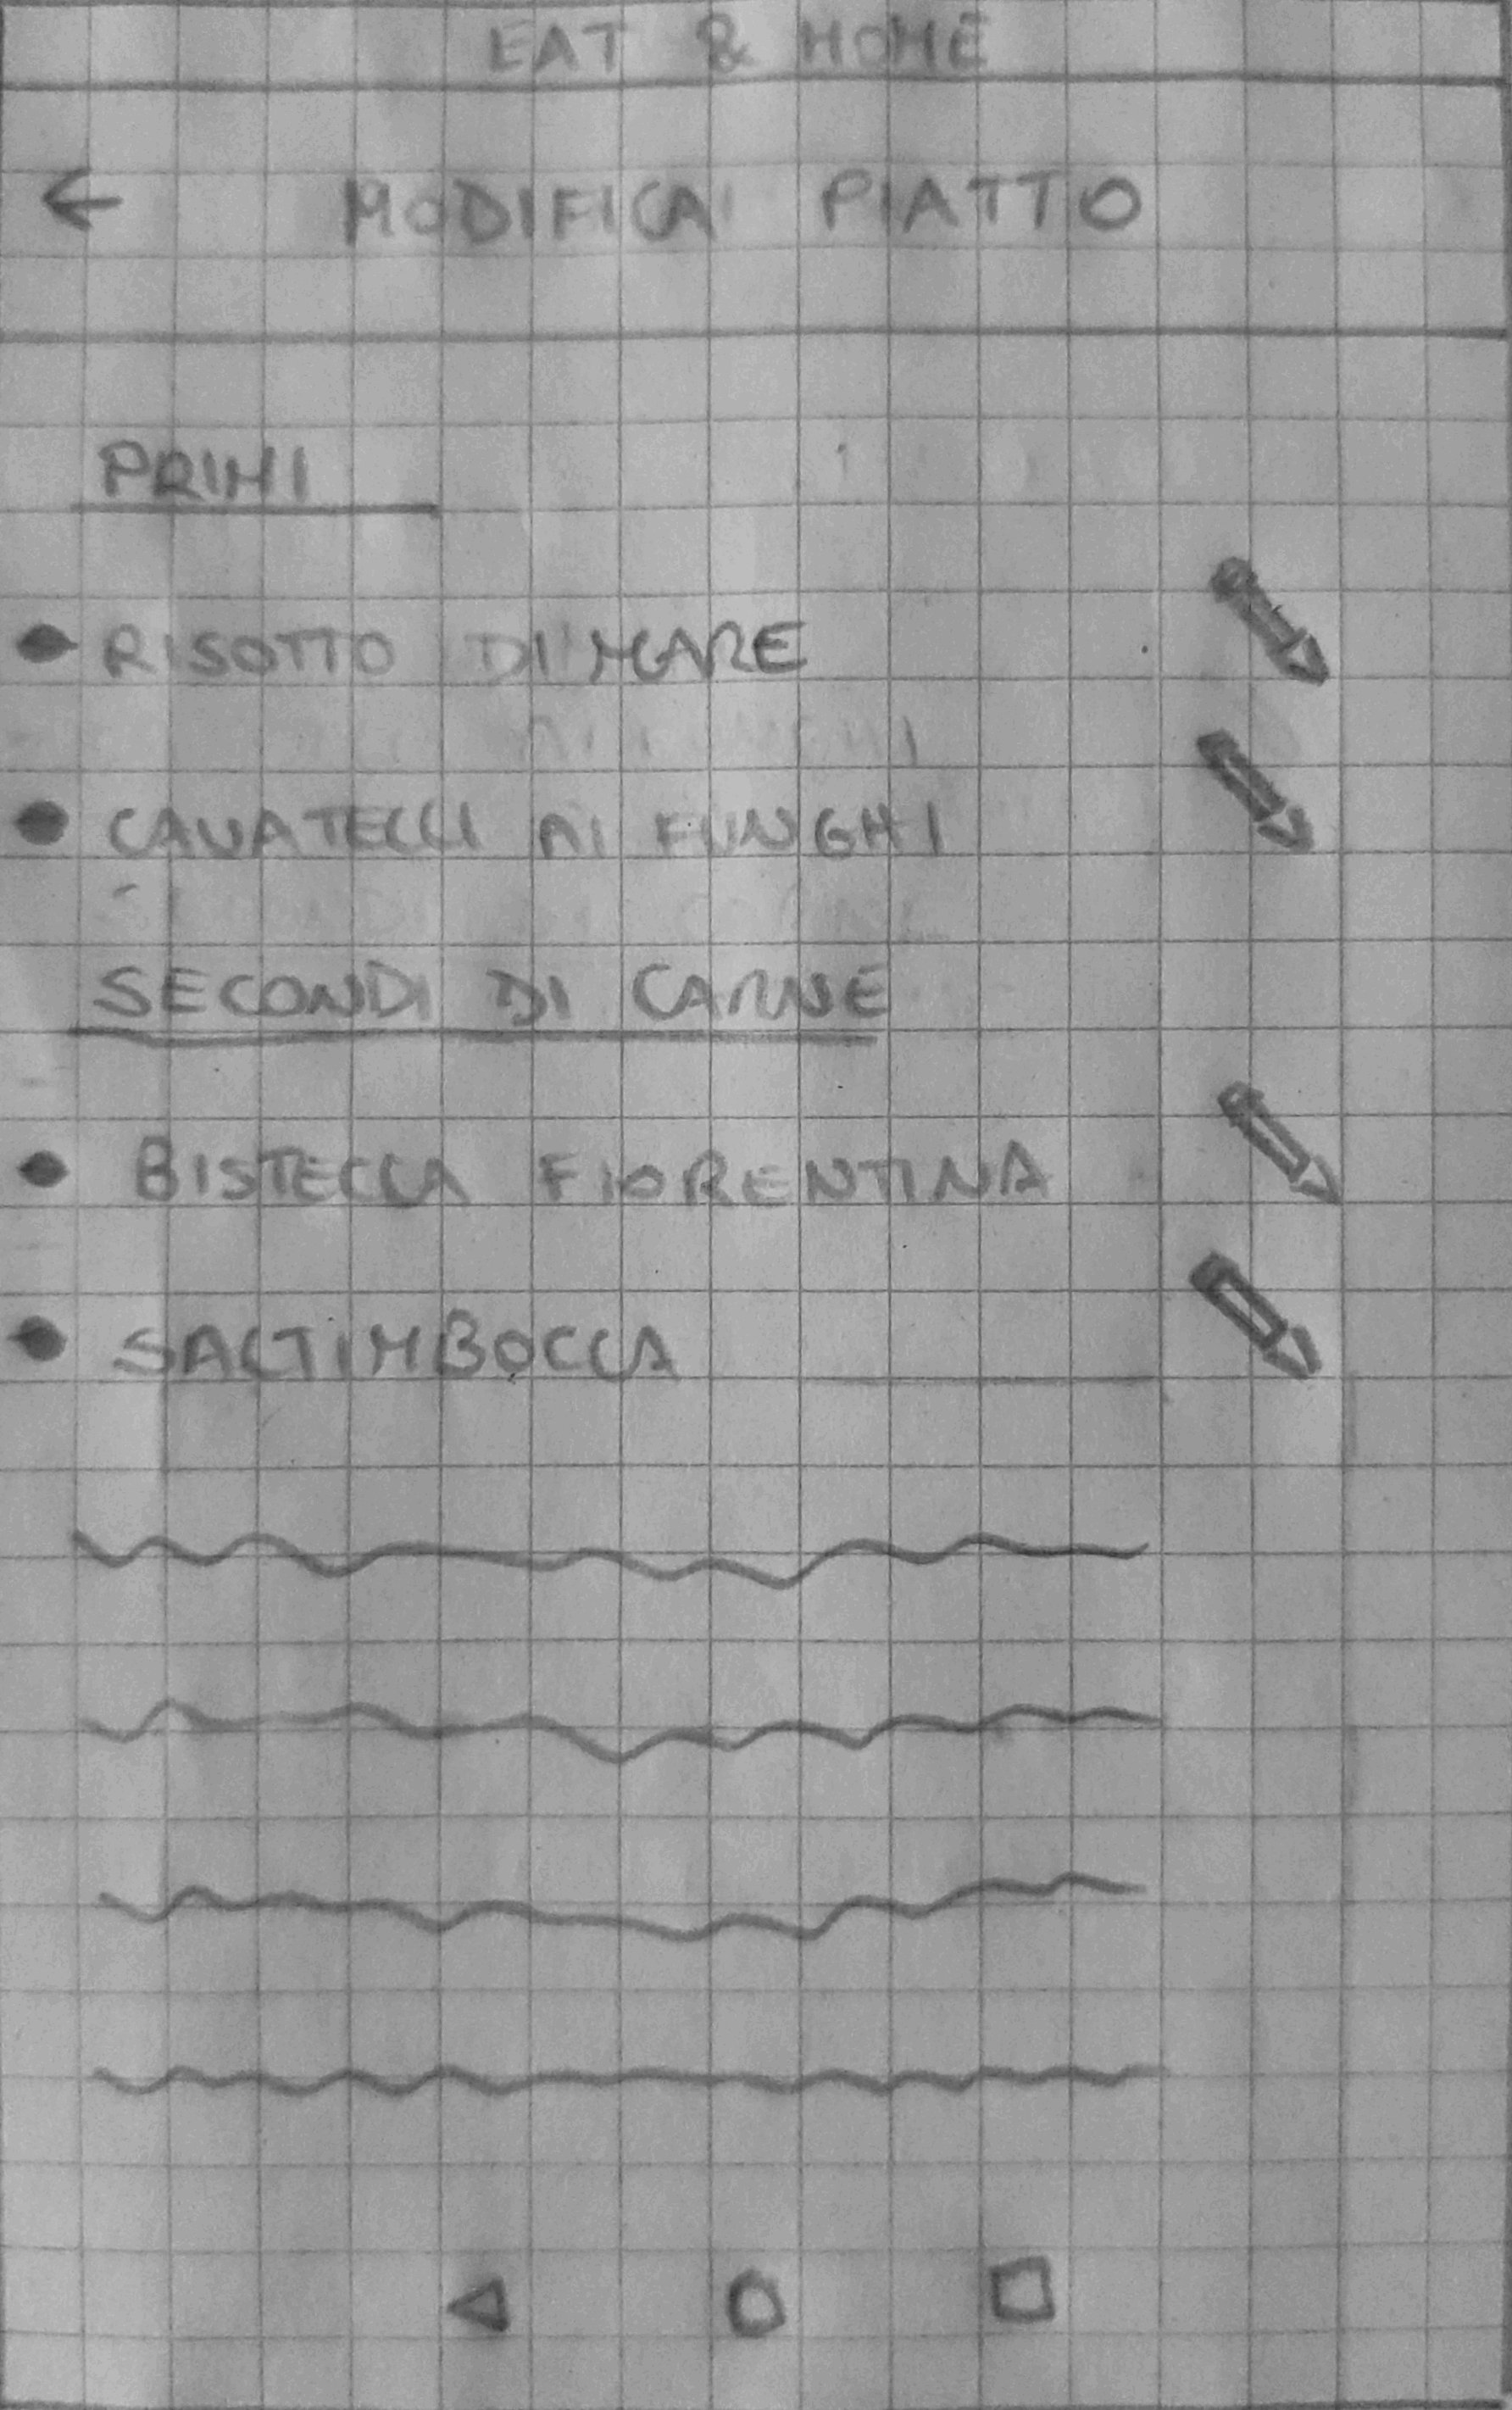 EAT & HOME
MODIFICA PIATTO
PRIMI
RISOTTO DI MARE
CAVATELLI AI FUNGHI
SECONDI DI CARNE
BISTECCA FIORENTINA
SALTIMBOCCA